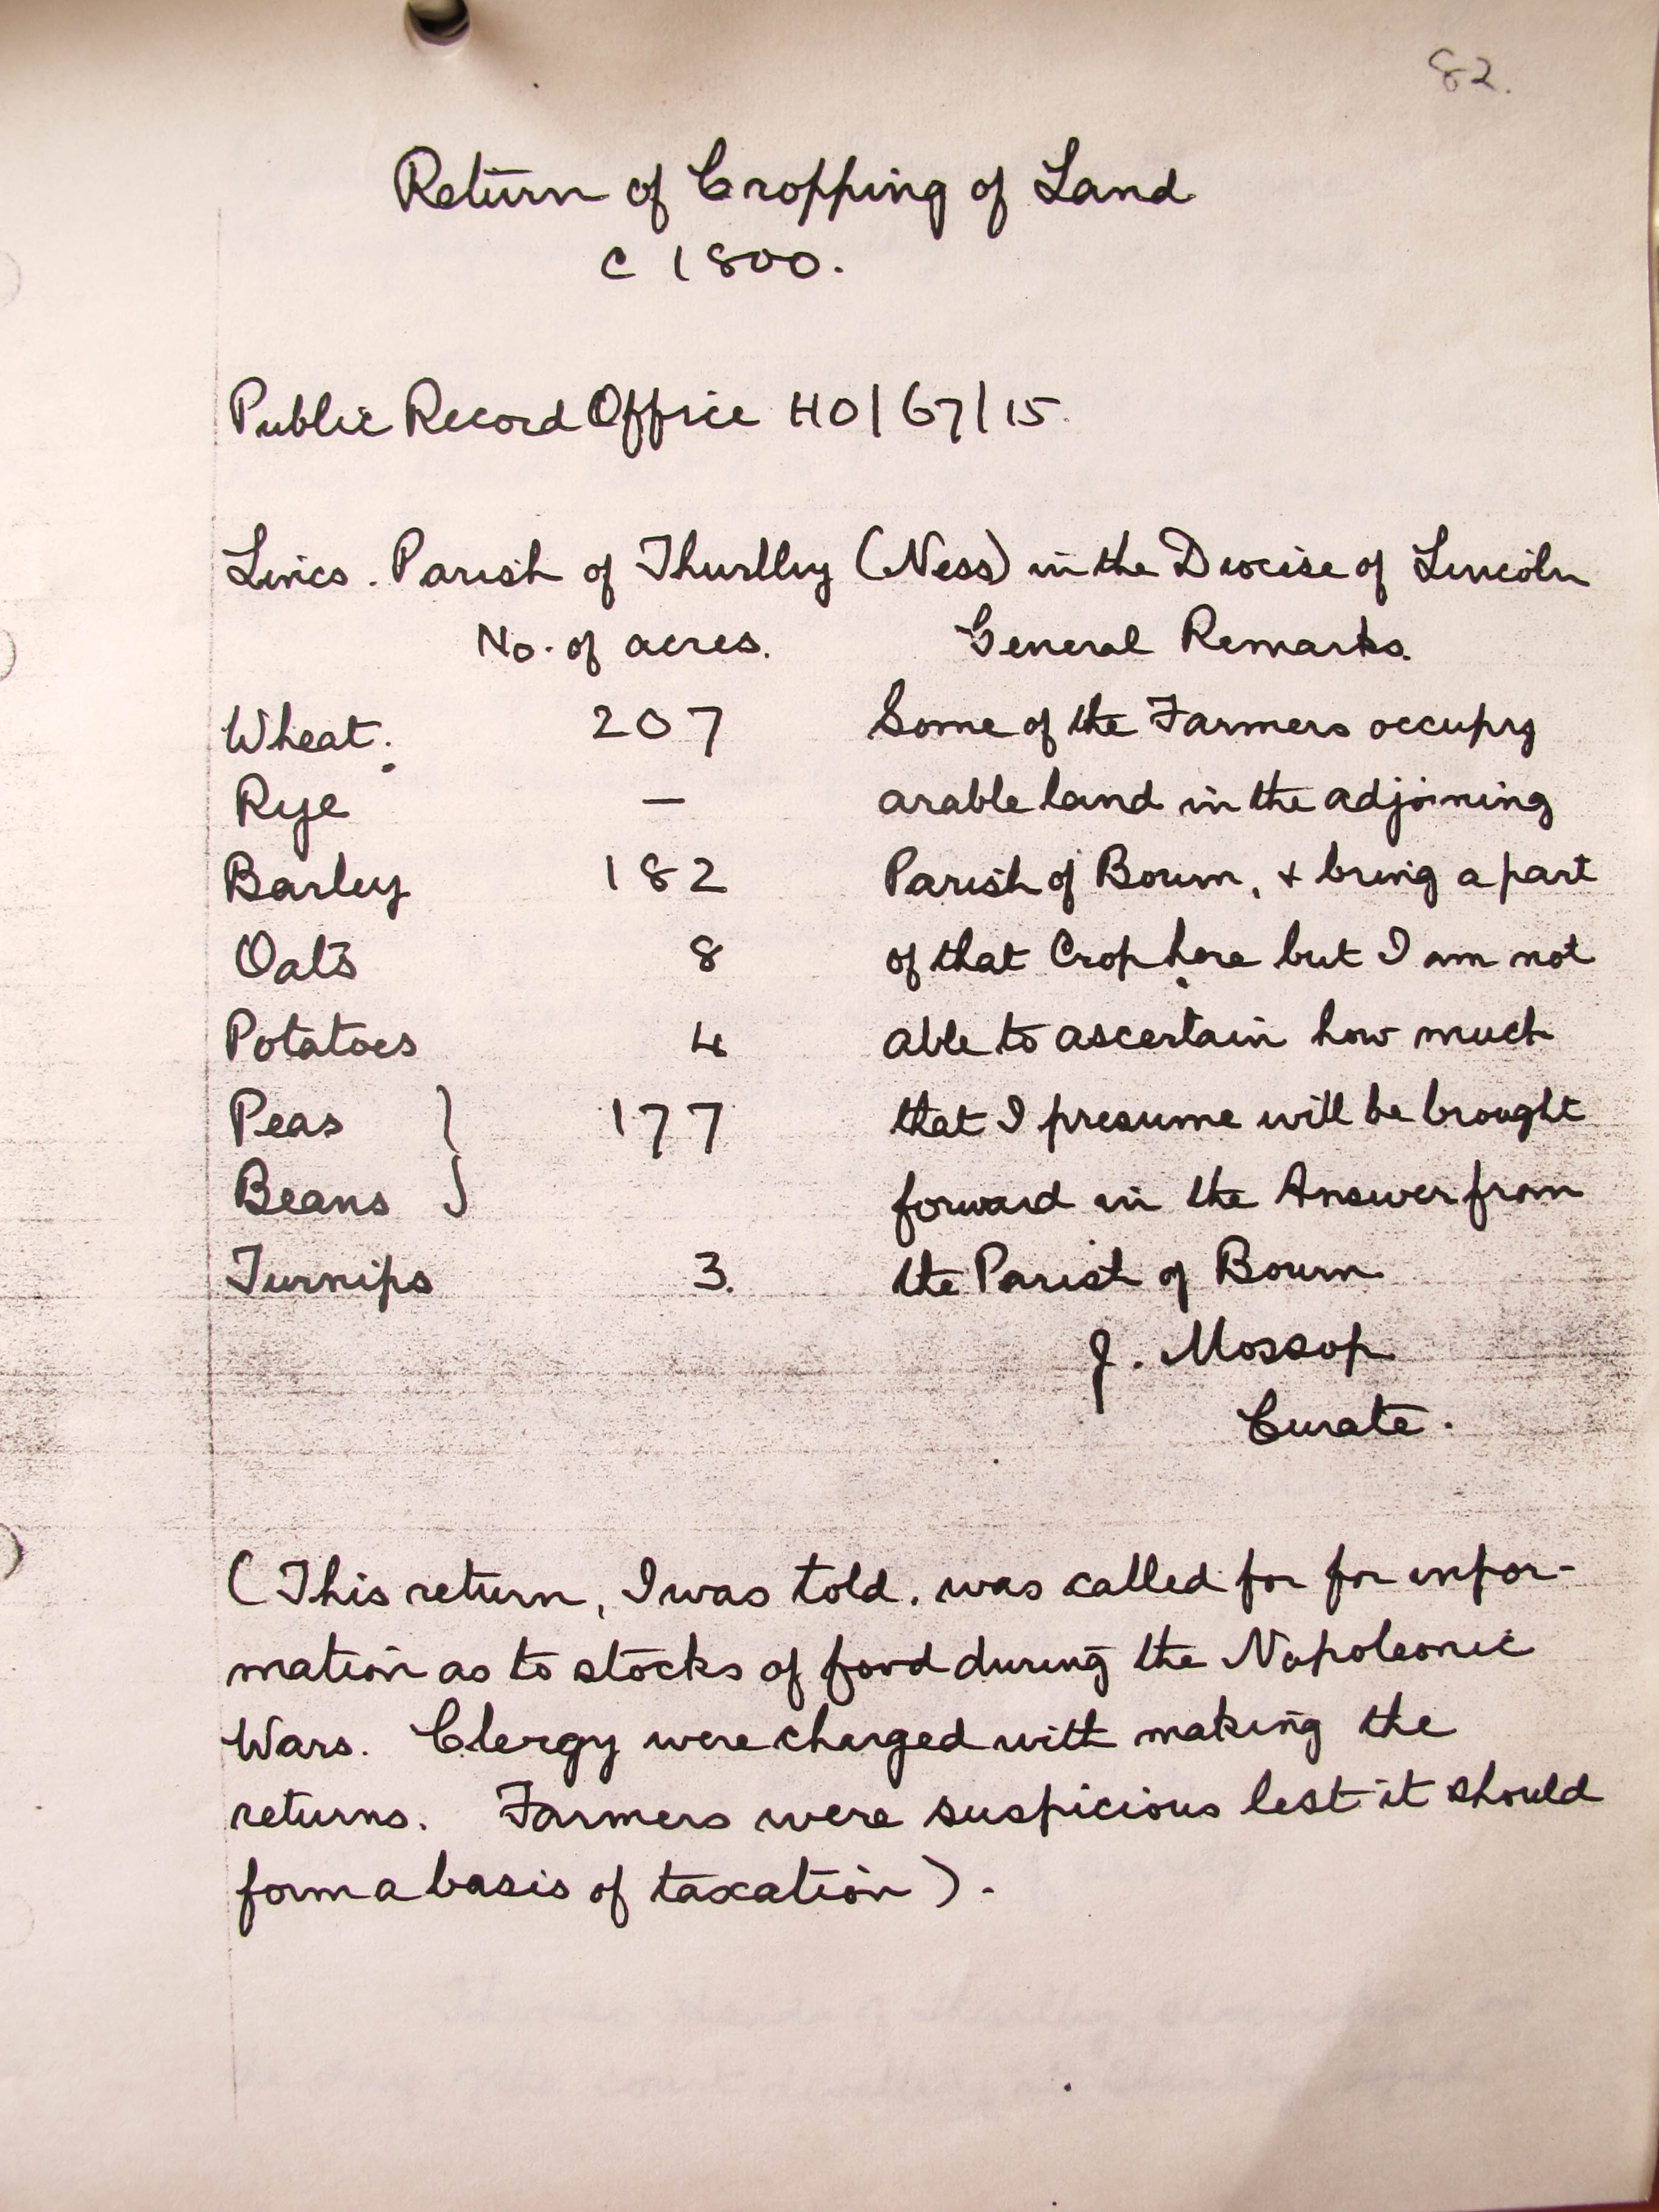 82.
Return of Cropping of Land
c 1800.
Public Record Office HO/67/15.
Lincs. Parish of Thurlby (Ness) in the Diocese of Lincoln
No. of acres. General Remarks.
Wheat. 207 Some of the Farmers occupy
Rye — arable land in the adjoining
Barley 182 Parish of Bourn, & bring a part
Oats 8 of that Crop here but I am not
Potatoes 4 able to ascertain how much
Peas } 177 that I presume will be brought
Beans } forward in the Answer from
Turnips 3. the Parish of Bourn
J. Mossop
Curate.
(This return, I was told, was called for for infor-
mation as to stocks of food during the Napoleonic
Wars. Clergy were charged with making the
returns. Farmers were suspicious lest it should
form a basis of taxation).